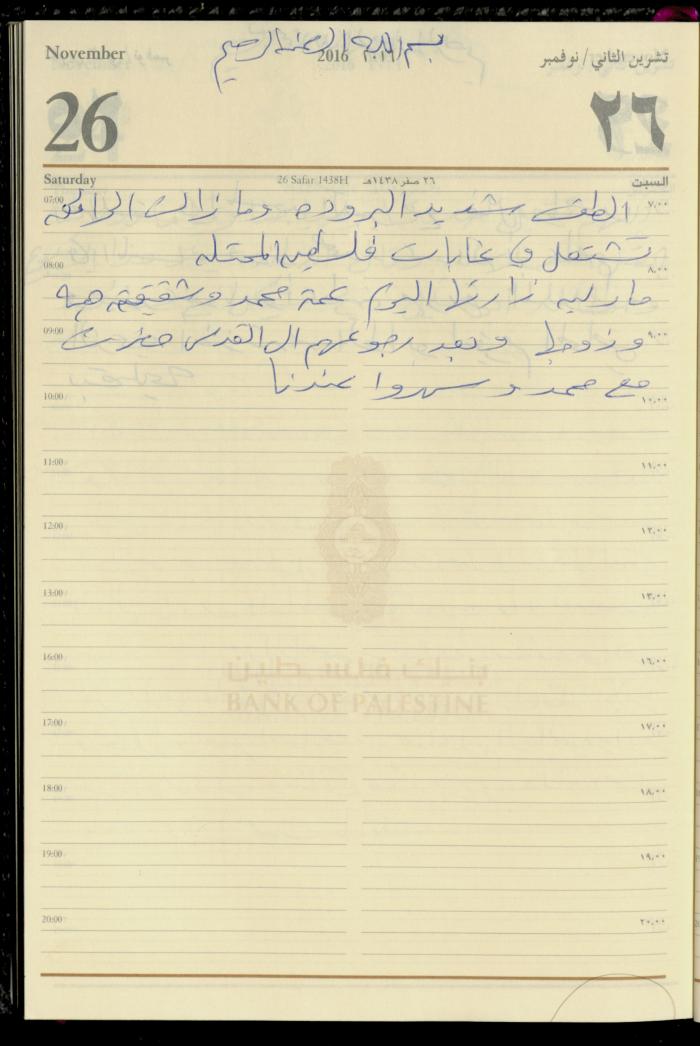 بسم الله الرحمن الرحيم
November 2016 ٢٠١٦ تشرين الثاني / نوفمبر
26 ٢٦
Saturday 26 Safar 1438H ٢٦ صفر ١٤٣٨هـ السبت
07:00 ٧,٠٠
الطقس شديد البروده وما زالت الحرائق
تشتعل في غابات فلسطين المحتله
08:00 ٨,٠٠
زارتنا اليوم عمة محمد وشقيقته هبه
09:00 ٩,٠٠
وزوجها وبعد رجوعهم الى القدس حضرت
مع محمد وسهروا عندنا
10:00 ١٠,٠٠
11:00 ١١,٠٠
12:00 ١٢,٠٠
13:00 ١٣,٠٠
بنك فلسطين
16:00 ١٦,٠٠
BANK OF PALESTINE
17:00 ١٧,٠٠
18:00 ١٨,٠٠
19:00 ١٩,٠٠
20:00 ٢٠,٠٠